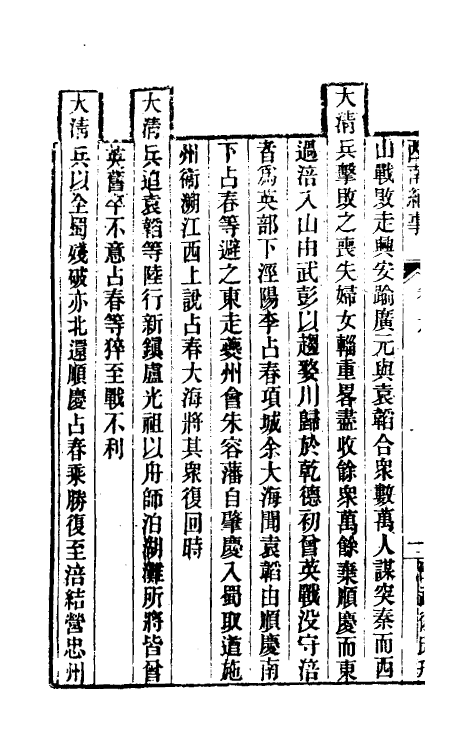 山戰敗走興安踰廣元與袁韜合衆數萬人謀突秦而西
大清兵擊敗之喪失婦女輜重畧盡收餘衆萬餘棄順慶而東
過涪入山由武彭以趨婺川歸於乾德初曾英戰没守涪
者爲英部下涇陽李占春項城余大海聞袁韜由順慶南
下占春等避之東走夔州會朱容藩自肇慶入蜀取道施
州衛溯江西上說占春大海將其衆復回時
大清兵追袁韜等陸行新鎮盧光祖以舟師泊湖灘所將皆曾
英舊卒不意占春等猝至戰不利
大清兵以全蜀殘破亦北還順慶占春乘勝復至涪結營忠州